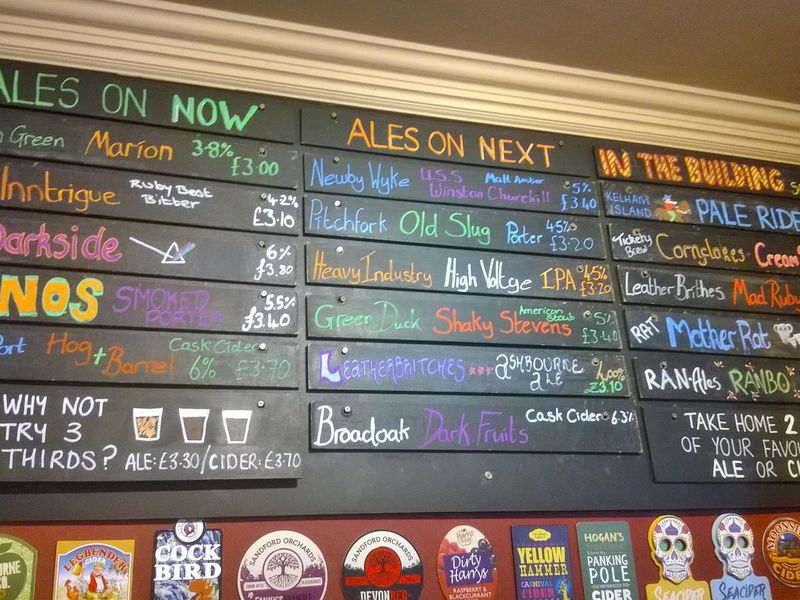 ALES ON NOW
Green Marion 3.8% £3.00
Inntrigue Ruby Best Bitter 4.2% £3.10
Darkside 6% £3.80
NOS SMOKED PORTER 5.5% £3.40
Hog + Barrel Cask Cider 6% £3.70
WHY NOT
TRY 3
THIRDS? ALE: £3.30/CIDER: £3.70
ALES ON NEXT
Newby Wyke U.S.S Winston Churchill Malt Amber 5% £3.40
Pitchfork Old Slug Porter 4.5% £3.20
Heavy Industry High Voltge IPA 4.5% £3.20
Green Duck Shaky Stevens American Stout 5% £3.40
LEATHERBRITCHES *** ASHBOURNE ALE 4.00% £3.10
Broadoak Dark Fruits Cask Cider 6.3%
IN THE BUILDING
KELHAM ISLAND PALE RIDE
Tickety Brew Cornflakes Cream
Leather Brithes Mad Ruby
RAT Mother Rat
RAN-Ales RANBO
TAKE HOME 2
OF YOUR FAVO
ALE OR CI
LEGBENDER
CIDER
COCK
BIRD
SANDFORD ORCHARDS
SANDFORD ORCHARDS
DEVON RED
Dirty
Harrys
RASPBERRY &
BLACKCURRANT
YELLOW
HAMMER
CARNIVAL
CIDER
HOGAN'S
PANKING
POLE
CIDER
SEACIDER
SEACIDER
MOONSHINE
CIDER